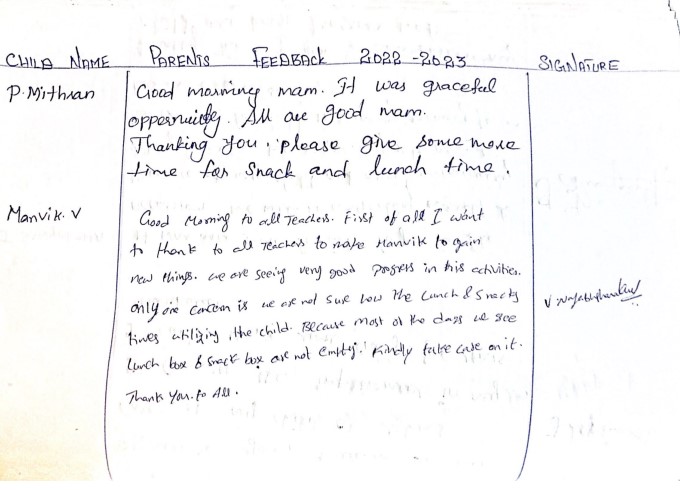 CHILD NAME PARENTS FEEDBACK 2022-2023 SIGNATURE
P. Mithran
Good morning mam. It was graceful
oppernuity. All are good mam.
Thanking you, please give some more
time for snack and lunch time.
Manvik. V
Good Morning to all Teachers. First of all I want
to thank to all Teachers to make Manvik to gain
new things. we are seeing very good progress in his activities.
only one concern is we are not sure how the Lunch & Snacks
times utilizing, the child. Because most of the days we see
Lunch box & snack box are not empty. Kindly take care on it.
Thank You. to All.